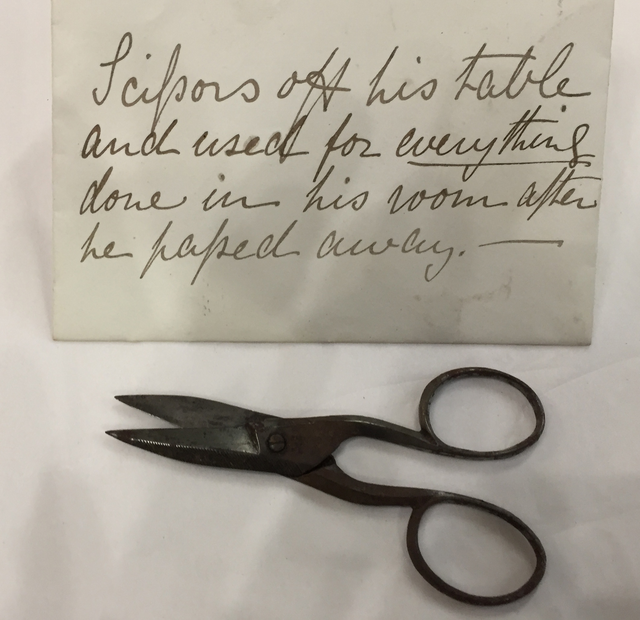 Sciſsors off his table
and used for everything
done in his room after
he paſsed away. —